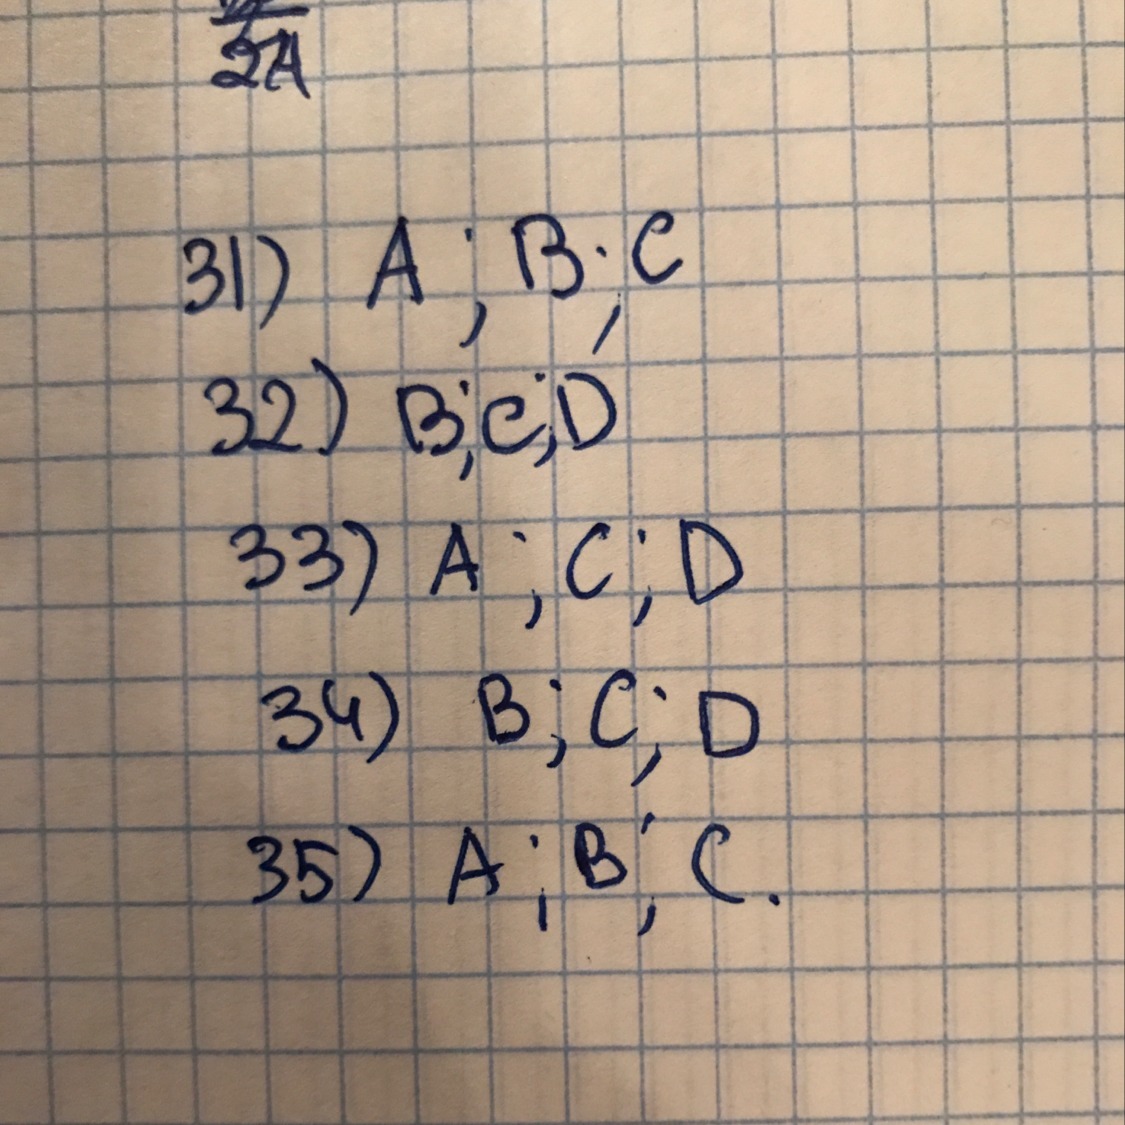 24
31) A; B; C
32) B; C; D
33) A; C; D
34) B; C; D
35) A; B; C.